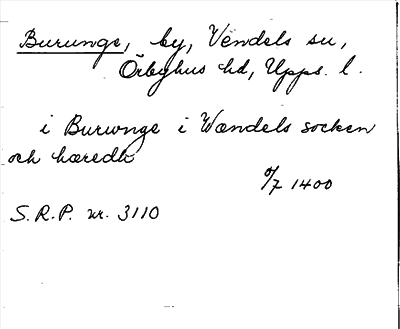 Burunge, by, Vendels sn,
Örbyhus hd, Upps. l.
i Burunge i Wændels socken
och hæredh
9/7 1400
S.R.P. nr. 3110